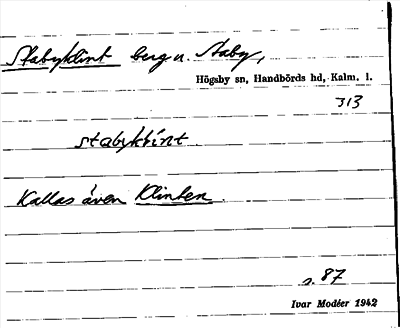 Stabyklint berg n. Staby,
Högsby sn, Handbörds hd, Kalm. l.
313
stabyklint
Kallas även Klinten.
s. 87
Ivar Modéer 1942